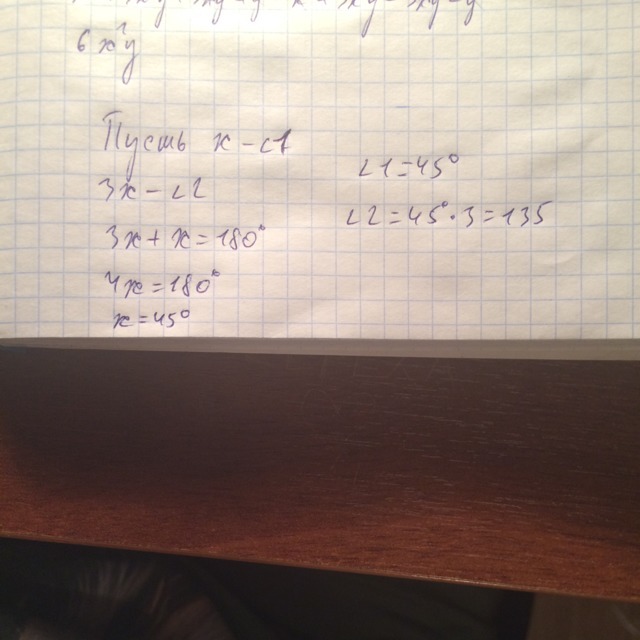 6x²y
Пусть x – ∠1
3x – ∠2
3x + x = 180°
4x = 180°
x = 45°
∠1 = 45°
∠2 = 45° · 3 = 135